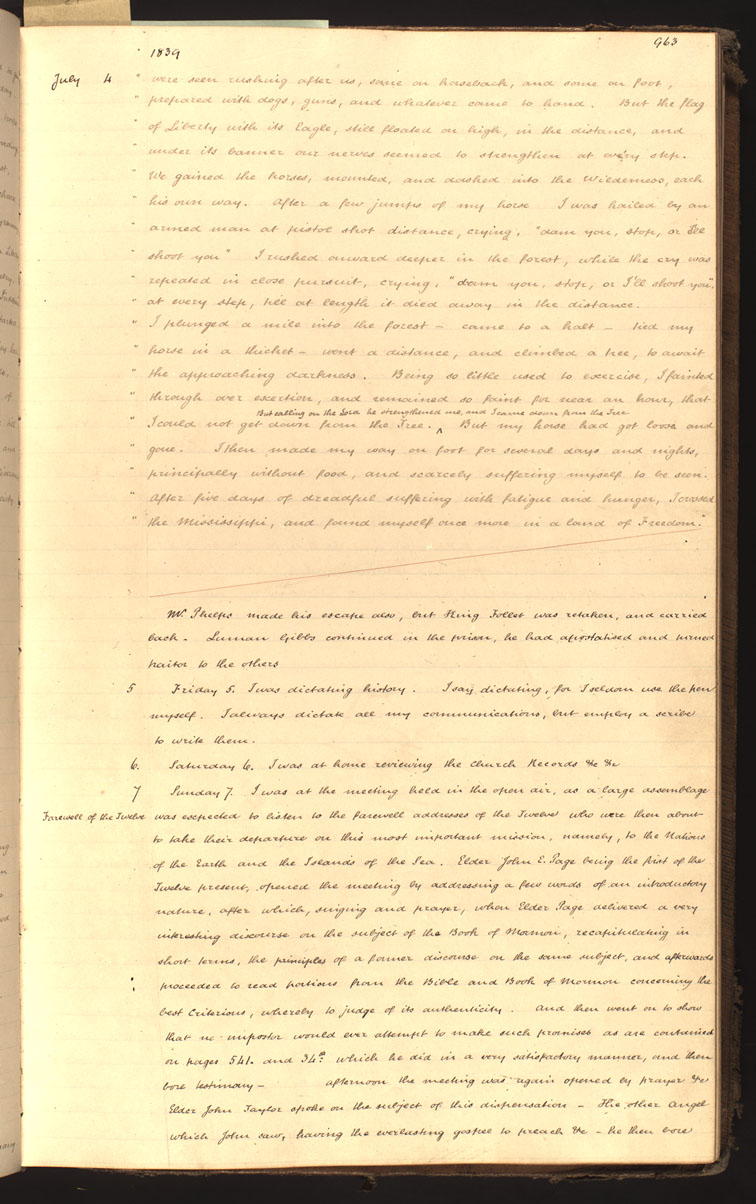 1839
963
July 4 " were seen rushing after us, some on horseback, and some on foot,
" prepared with dogs, guns, and whatever came to hand. But the flag
" of Liberty with its Eagle, still floated on high, in the distance, and
" under its banner our nerves seemed to strengthen at every step.
" We gained the horses, mounted, and dashed into the wilderness, each
" his own way. After a few jumps of my horse I was hailed by an
" armed man at pistol shot distance, crying, "dam you, stop, or I'll
" shoot you" I rushed onward deeper in the forest, while the cry was
" repeated in close pursuit, crying, "dam you, stop, or I'll shoot you",
" at every step, till at length it died away in the distance.
" I plunged a mile into the forest – came to a halt – tied my
" horse in a thicket – went a distance, and climbed a tree, to await
" the approaching darkness. Being so little used to exercise, I fainted
" through over exertion, and remained so faint for near an hour, that
But calling on the Lord he strengthened me, and I came down from the Tree
" I could not get down from the Tree. ^ But my horse had got loose and
" gone. I then made my way on foot for several days and nights,
" principally without food, and scarcely suffering myself to be seen.
" After five days of dreadful suffering with fatigue and hunger, I crossed
" the Mississippi, and found myself once more in a land of Freedom."
Mr. Phelps made his escape also, but King Follet was retaken, and carried
back. Luman Gibbs continued in the prison, he had apostatised and turned
traitor to the others
5 Friday 5. I was dictating history. I say dictating, for I seldom use the pen
myself. I always dictate all my communications, but employ a scribe
to write them.
6. Saturday 6. I was at home reviewing the Church Records &c &c
7 Sunday 7. I was at the meeting held in the open air, as a large assemblage
Farewell of the Twelve was expected to listen to the farewell addresses of the Twelve who were then about
to take their departure on this most important mission, namely, to the Nations
of the Earth and the Islands of the Sea. Elder John E. Page being the first of the
Twelve present, opened the meeting by addressing a few words of an introductory
nature, after which, singing and prayer, when Elder Page delivered a very
interesting discourse on the subject of the Book of Mormon, recapitulating in
short terms, the principles of a former discourse on the same subject, and afterwards
proceeded to read portions from the Bible and Book of Mormon concerning the
best Criterions, whereby to judge of its authenticity. And then went on to show
that no impostor would ever attempt to make such promises as are contained
on pages 541. and 34th. which he did in a very satisfactory manner, and then
bore testimony – afternoon the meeting was again opened by prayer &c
Elder John Taylor spoke on the subject of this dispensation – the other Angel
which John saw, having the everlasting gospel to preach &c – he then bore